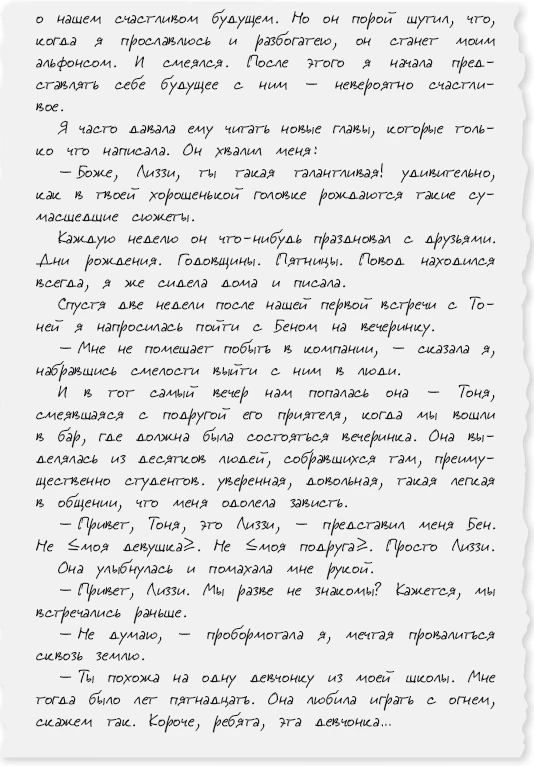 о нашем счастливом будущем. Но он порой шутил, что,
когда я прославлюсь и разбогатею, он станет моим
альфонсом. И смеялся. После этого я начала пред-
ставлять себе будущее с ним — невероятно счастли-
вое.
Я часто давала ему читать новые главы, которые толь-
ко что написала. Он хвалил меня:
— Боже, Лиззи, ты такая талантливая! удивительно,
как в твоей хорошенькой головке рождаются такие су-
масшедшие сюжеты.
Каждую неделю он что-нибудь праздновал с друзьями.
Дни рождения. Годовщины. Пятницы. Повод находился
всегда, я же сидела дома и писала.
Спустя две недели после нашей первой встречи с То-
ней я напросилась пойти с Беном на вечеринку.
— Мне не помешает побыть в компании, — сказала я,
набравшись смелости выйти с ним в люди.
И в тот самый вечер нам попалась она — Тоня,
смеявшаяся с подругой его приятеля, когда мы вошли
в бар, где должна была состояться вечеринка. Она вы-
делялась из десятков людей, собравшихся там, преиму-
щественно студентов. уверенная, довольная, такая легкая
в общении, что меня одолела зависть.
— Привет, Тоня, это Лиззи, — представил меня Бен.
Не ≤моя девушка≥. Не ≤моя подруга≥. Просто Лиззи.
Она улыбнулась и помахала мне рукой.
— Привет, Лиззи. Мы разве не знакомы? Кажется, мы
встречались раньше.
— Не думаю, — пробормотала я, мечтая провалиться
сквозь землю.
— Ты похожа на одну девчонку из моей школы. Мне
тогда было лет пятнадцать. Она любила играть с огнем,
скажем так. Короче, ребята, эта девчонка...